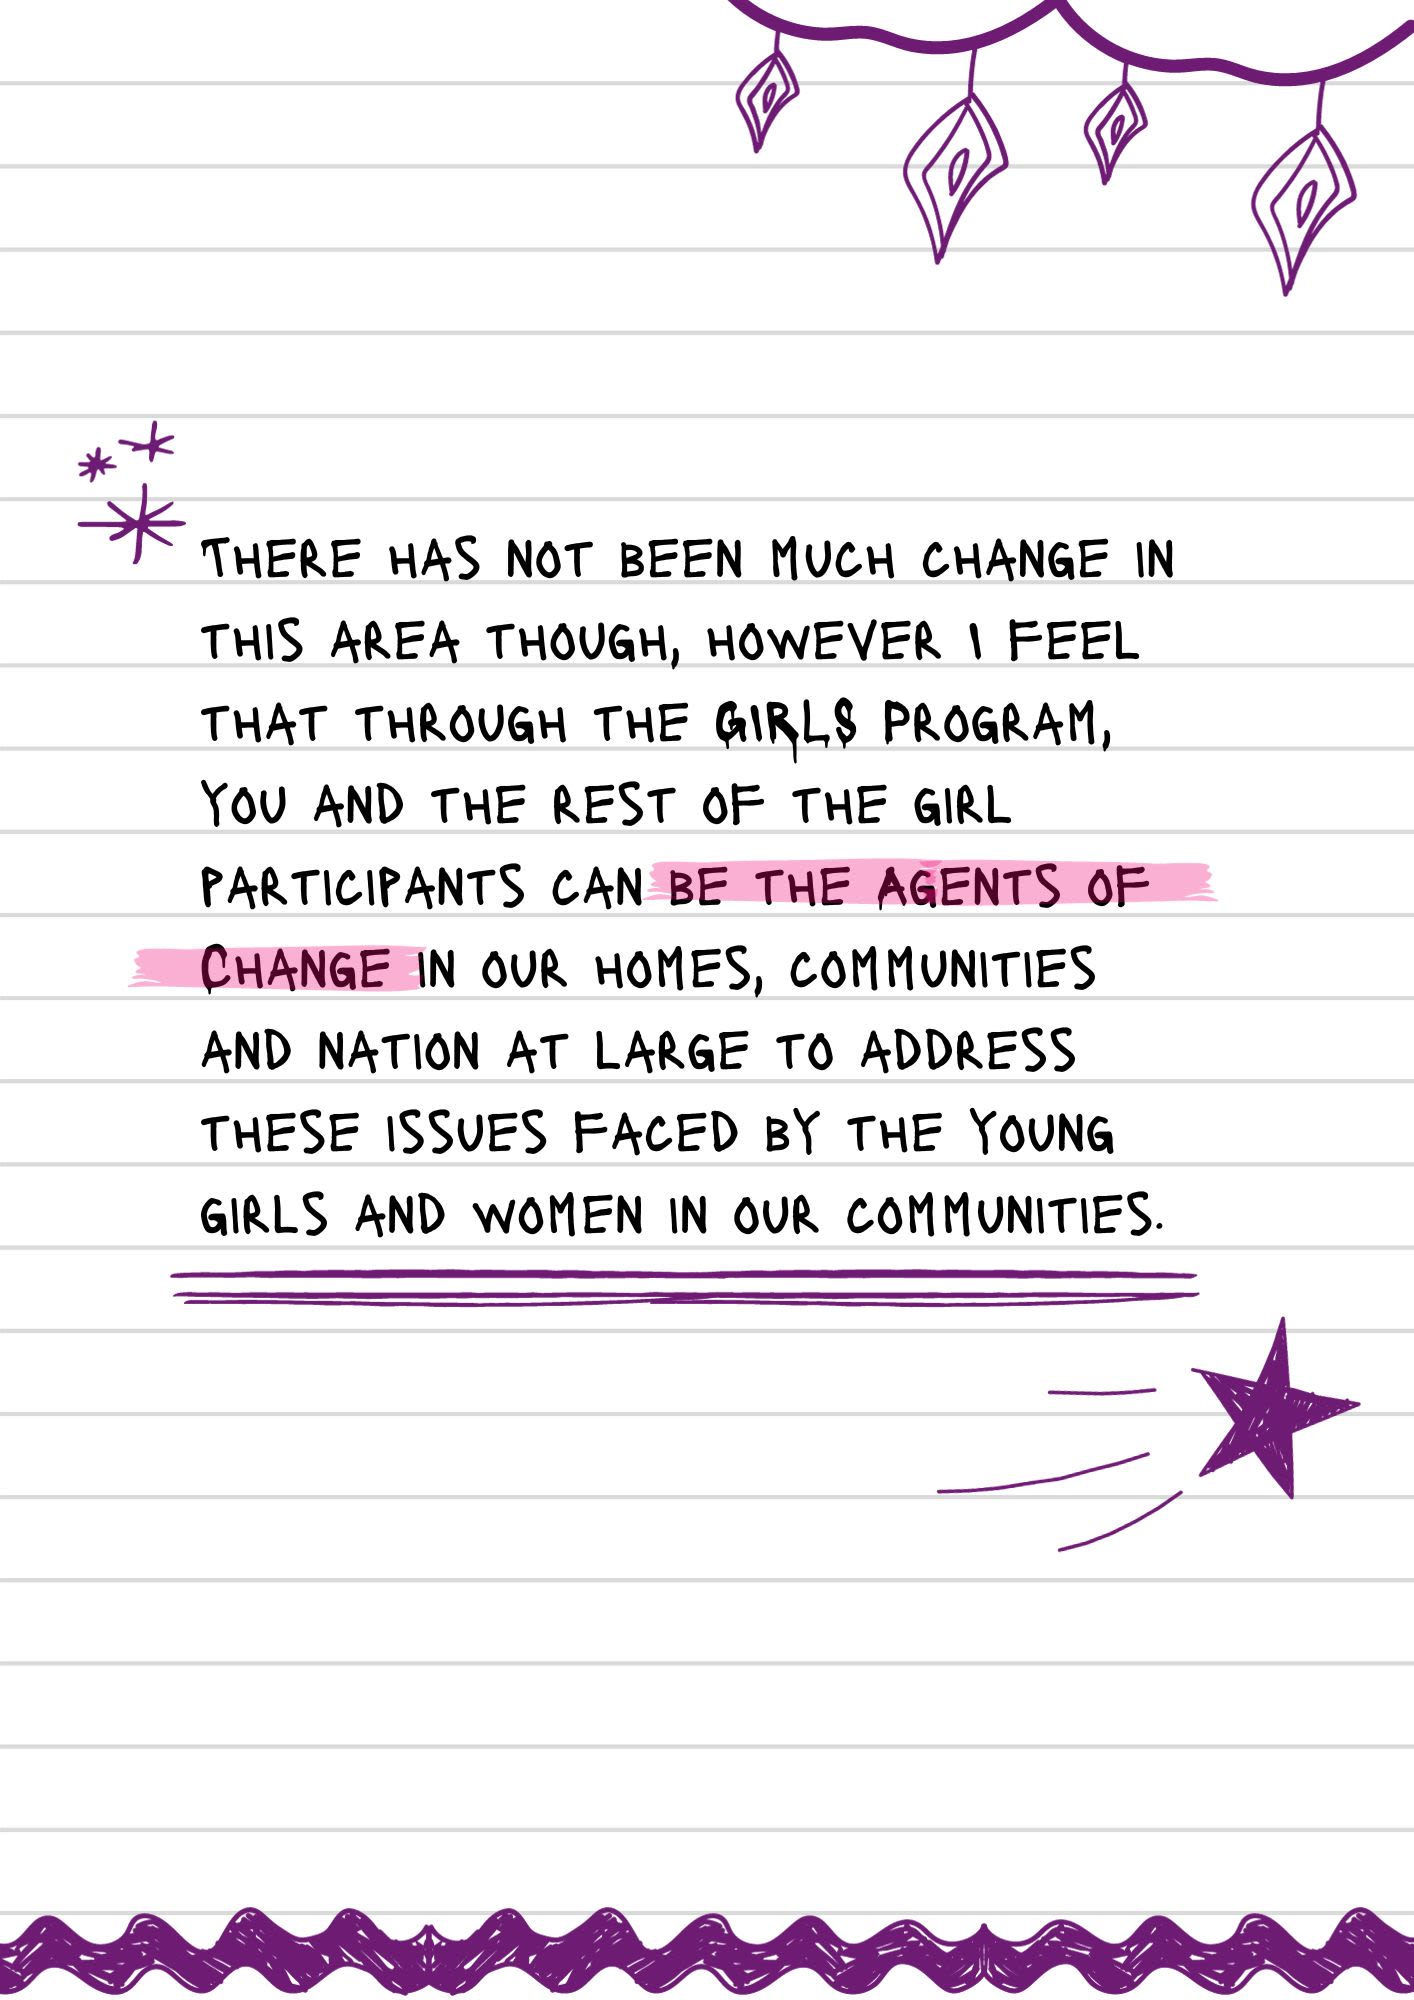 There has not been much change in
this area though, however I feel
that through the GIRLS Program,
You and the rest of the girl
participants can be the Agents of
Change in our homes, communities
and nation at large to address
these issues faced by the Young
girls and women in our communities.